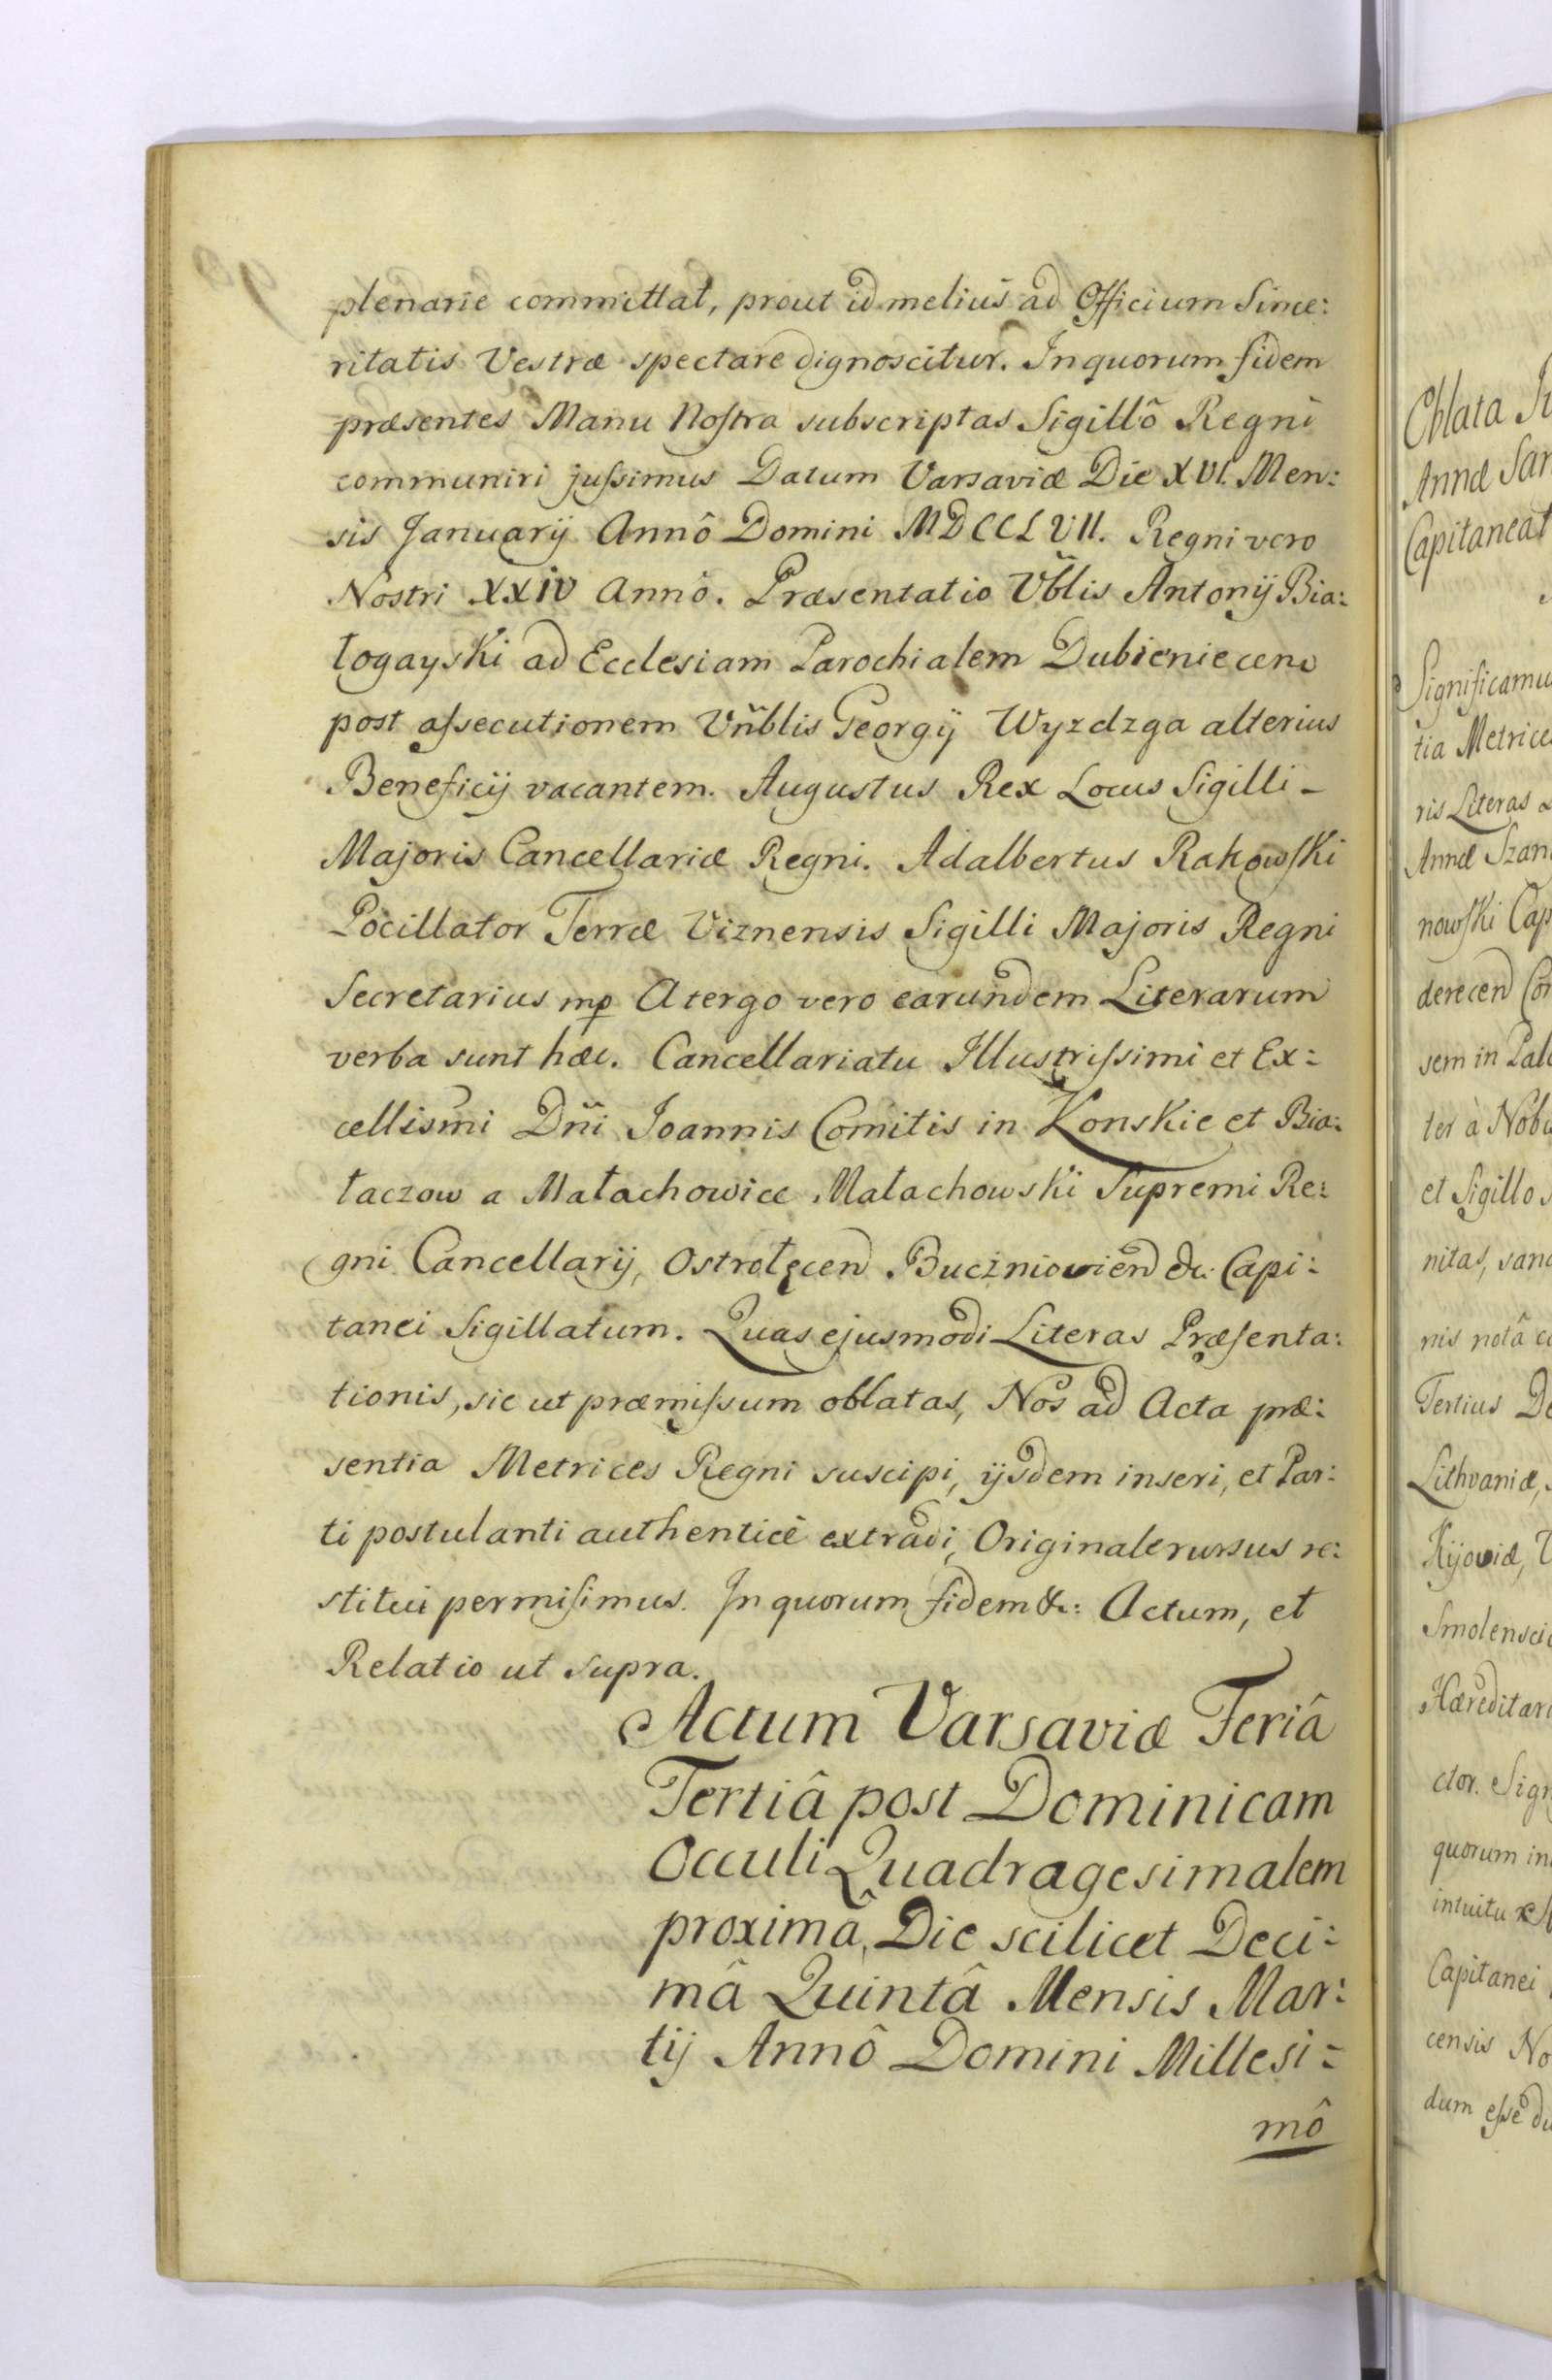 plenarie committat, prout id melius ad Officium Since:
ritatis Vestræ spectare dignoscitur. In quorum fidem
præsentes Manu Nostra subscriptas Sigillô Regni
communiri jussimus Datum Varsaviæ Die XVI. Men:
sis Januarij Annô Domini MDCCLVII. Regni vero
Nostri XXIV Annô. Præsentatio Vñblis Antonij Bia:
łogayski ad Ecclesiam Parochialem Dubieniecen
post assecutionem Vñblis Georgij Wyzdzga alterius
Beneficij vacantem. Augustus Rex Locus Sigilli -
Majoris Cancellariæ Regni. Adalbertus Rakowski
Pocillator Terræ Viznensis Sigilli Majoris Regni
Secretarius mp Atergo vero earundem Literarum
verba sunt hæc. Cancellariatu Illustrissimi et Ex:
cellismi Dñi Joannis Comitis in Konskie et Bia:
łaczow a Małachowice Małachowski Supremi Re:
gni Cancellarij, Ostrołęcen Buczniowien &c. Capi:
tanei Sigillatum. Quas ejusmodi Literas Præsenta:
tionis, sic ut præmissum oblatas, Nos ad Acta præ:
sentia Metrices Regni suscipi, ijsdem inseri, et Par:
ti postulanti authenticè extradi, Originale rursus re:
stitui permisimus. In quorum fidem &c: Actum, et
Relatio ut supra.
Actum Varsaviæ Feriâ
Tertiâ post Dominicam
Occuli Quadragesimalem
proximâ, Die scilicet Deci:
mâ Quintâ Mensis Mar:
tij Annô Domini Millesi:
mô
Oblata
Annæ
Capitaneat
Significamus
tia Metrices
ris Literas
Annæ
nowski Cap
derecen
sem in
ter à Nob
et Sigillo
nitas,
nis notâ
Tertius
Lithvaniæ,
Kijoviæ,
Smolensci
Hæreditari
ctor. Sign
quorum in
intuitu
Capitanei
censis No
dum esse